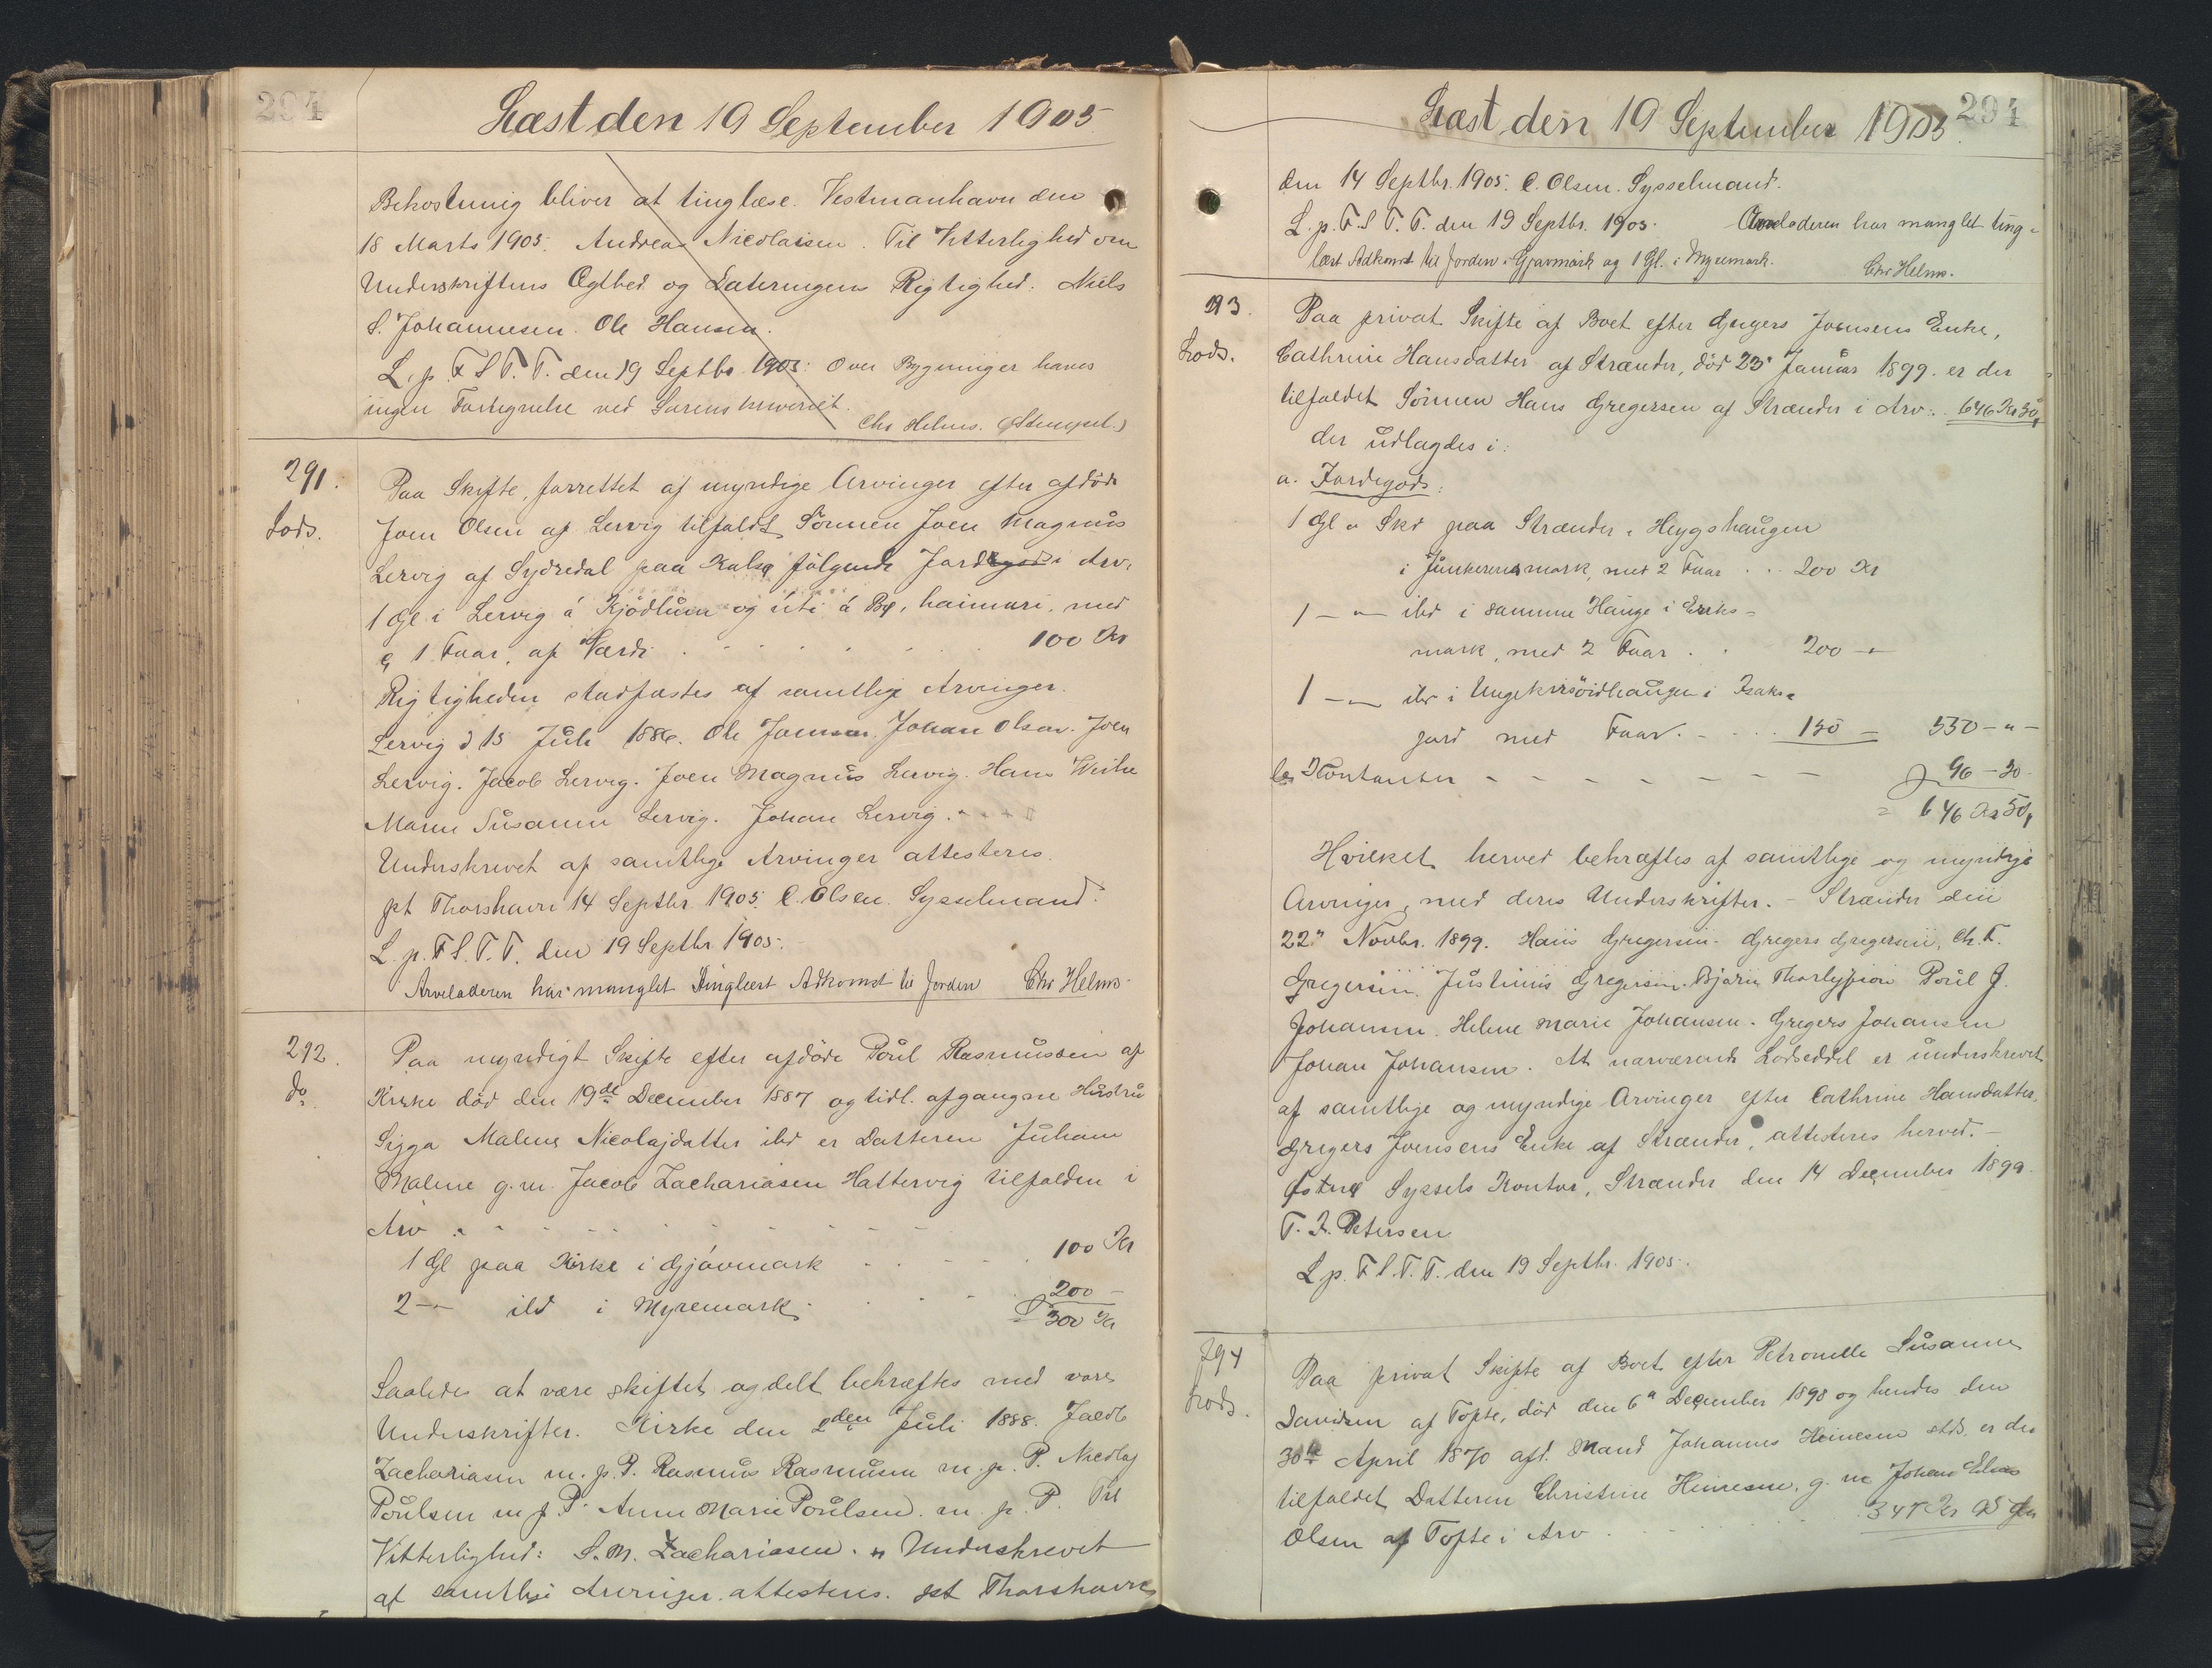 294
Læst den 19 September 1905
Bekostning bliver at tinglæse. Vestmanhavn den
18 Marts 1905. Andreas Nicolaisen. Til Vitterlighed om
Underskriftens Ægthed og Dateringens Rigtighed: Niels
S. Johannesen. Ole Hansen.
L. p. F S T. T. den 19 Septbr. 1905: Over Bygninger haves
ingen Fortegnelse ved Sorenskriveriet.
Chr Helms. (Stempel.)
291.
Lods.
Paa Skifte, forrettet af myndige Arvinger efter afdöde
Joen Olsen af Lervig tilfaldt Sönnen Joen Magnus
Lervig af Sydredal paa Kalsø følgende Jordegods i Arv,
1 Gl i Lervig á Kjödlum og uti á By, haimari, med
1 Faar, af Værdi 100 Kr
Rigtigheden stadfæstes af samtlige Arvinger.
Lervig d 15 Juli 1886. Ole Joensen. Johan Olsen. Joen
Lervig. Jacob Lervig. Joen Magnus Lervig. Hans Weihe
Maren Susanne Lervig. Johan Lervig.
Underskrevet af samtlige Arvinger attesteres.
pt Thorshavn 14 Septbr. 1905. C. Olsen. Sysselmand.
L. p. F S. T. T. den 19 Septbr. 1905.
Arveladeren har manglet tinglæst Adkomst til Jorden Chr Helms.
292.
do.
Paa myndigt Skifte efter afdöde Poul Rasmussen af
Kirke död den 19de December 1887 og tidl. afgangne Hustru
Sigga Malene Nicolajdatter ibd er Datteren Juhane
Malene g. m. Jacob Zachariasen Hattervig tilfalden i
Arv
1 Gl paa Kirke i Gjóvmark 100 Kr
2 -"- ibd i Myremark 200 -
300 Kr
Saaledes at være skiftet og delt bekræftes med vore
Underskrifter. Kirke den 2den Juli 1888. Jacob
Zachariasen m. p. P. Rasmus Rasmussen m. p. P. Nicolaj
Poulsen m p P. Anne Marie Poulsen. m. p. P. Til
Vitterlighed: S. M. Zachariasen. " Underskrevet
af samtlige Arvinger attesteres. pt Thorshavn
294
Læst den 19 September 1905.
den 14 Septbr. 1905. C. Olsen. Sysselmand.
L. p. F. S T. T. den 19 Septbr. 1905. Arveladeren har manglet ting-
læst Adkomst til Jorden i Gjovmark og 1 Gl. i Myremark.
Chr Helms.
293.
Lods.
Paa privat Skifte af Boet efter Gregers Joensens Enke,
Cathrine Hansdatter af Strænder, död 23" Januar 1899. er der
tilfaldet Sönnen Hans Gregersen af Strænder i Arv: 646 Kr 50
der udlagdes i:
a. Jordegods:
1 Gl " Skd paa Strænder i Heygshaugen
i Junkerensmark, med 2 Faar 200 Kr
1 - " - ibd i samme Hauge i Eriks-
mark, med 2 Faar 200 -"-
1 - " - ibd i Isaks-
jord med Faar 150 - 550 - " -
b. Kontanter 96 - 50
= 646 Kr 50
Hvilket herved bekræftes af samtlige og myndige
Arvinger, med deres Underskrifter. - Strænder den
22" Novbr. 1899. Hans Gregersen. Gregers Gregersen, Ch. F.
Gregersen. Justinus Gregersen. Bjarni Thorleifson Poul J.
Johansen. Helene Marie Johansen. Gregers Johansen
Johan Johansen. At nærværende Lodseddel er underskrevet
af samtlige og myndige Arvinger efter Cathrine Hansdatter,
Gregers Joensens Enke af Strænder, attesteres herved. -
Østerø Syssels Kontor, Strænder den 14 December 1899.
T. J. Petersen
L p. F S. T. T. den 19 Septbr. 1905.
294
Lods.
Paa privat Skifte af Boet efter Petronelle Susanne
Davidsen af Tofte, död den 6" December 1898 og hendes den
30te April 1870 afd. Mand Johannes Heinesen stds. er der
tilfaldet Datteren Christine Heinesen, g. m Johan Elias
Olsen af Tofte i Arv 347 Kr